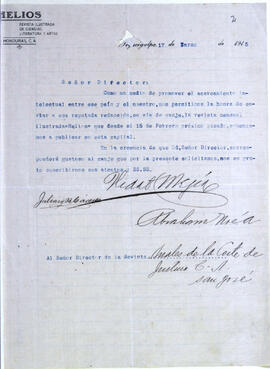 HELIOS
REVISTA ILUSTRADA
DE CIENCIAS,
LITERATURA Y ARTES
HONDURAS, C.A.
Tegucigalpa, 17 de Marzo de 1915
Señor Director:
Como un medio de promover el acercamiento in-
telectual entre ese país y el nuestro, nos permitimos la honra de
enviar a esa reputada redacción, en vía de canje, la revista semanal
ilustrada «Helios» que desde el 15 de Febrero próximo pasado, comenza-
mos a publicar en esta capital.
En la creencia de que Ud, Señor Director, co-
rresponderá gustoso al canje que por la presente solicitamos, nos es gra-
to suscribirnos sus atentos y SS. SS.
Mejía
Abraham
Al Señor Director de la Revista
Anales de la Corte de
Justicia C-A
San José